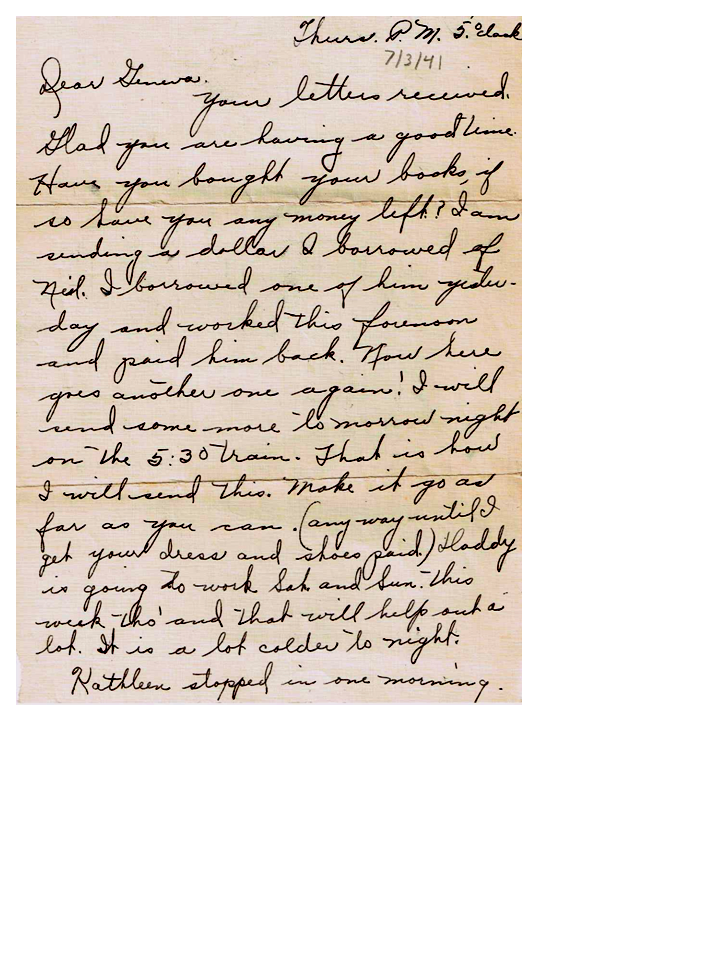 Thurs. P. M. 5 o'clock
7/3/41
Dear Geneva.
Your letters received.
Glad you are having a good time.
Have you bought your books, if
so have you any money left? I am
sending a dollar I borrowed of
Ned. I borrowed one of him yester-
day and worked this forenoon
and paid him back. Now here
goes another one again! I will
send some more to morrow night
on the 5:30 train. That is how
I will send this. Make it go as
far as you can. (any way until I
get your dress and shoes paid.) Daddy
is going to work Sat. and Sun. this
week tho' and that will help out a
lot. It is a lot colder to night.
Kathleen stopped in one morning.